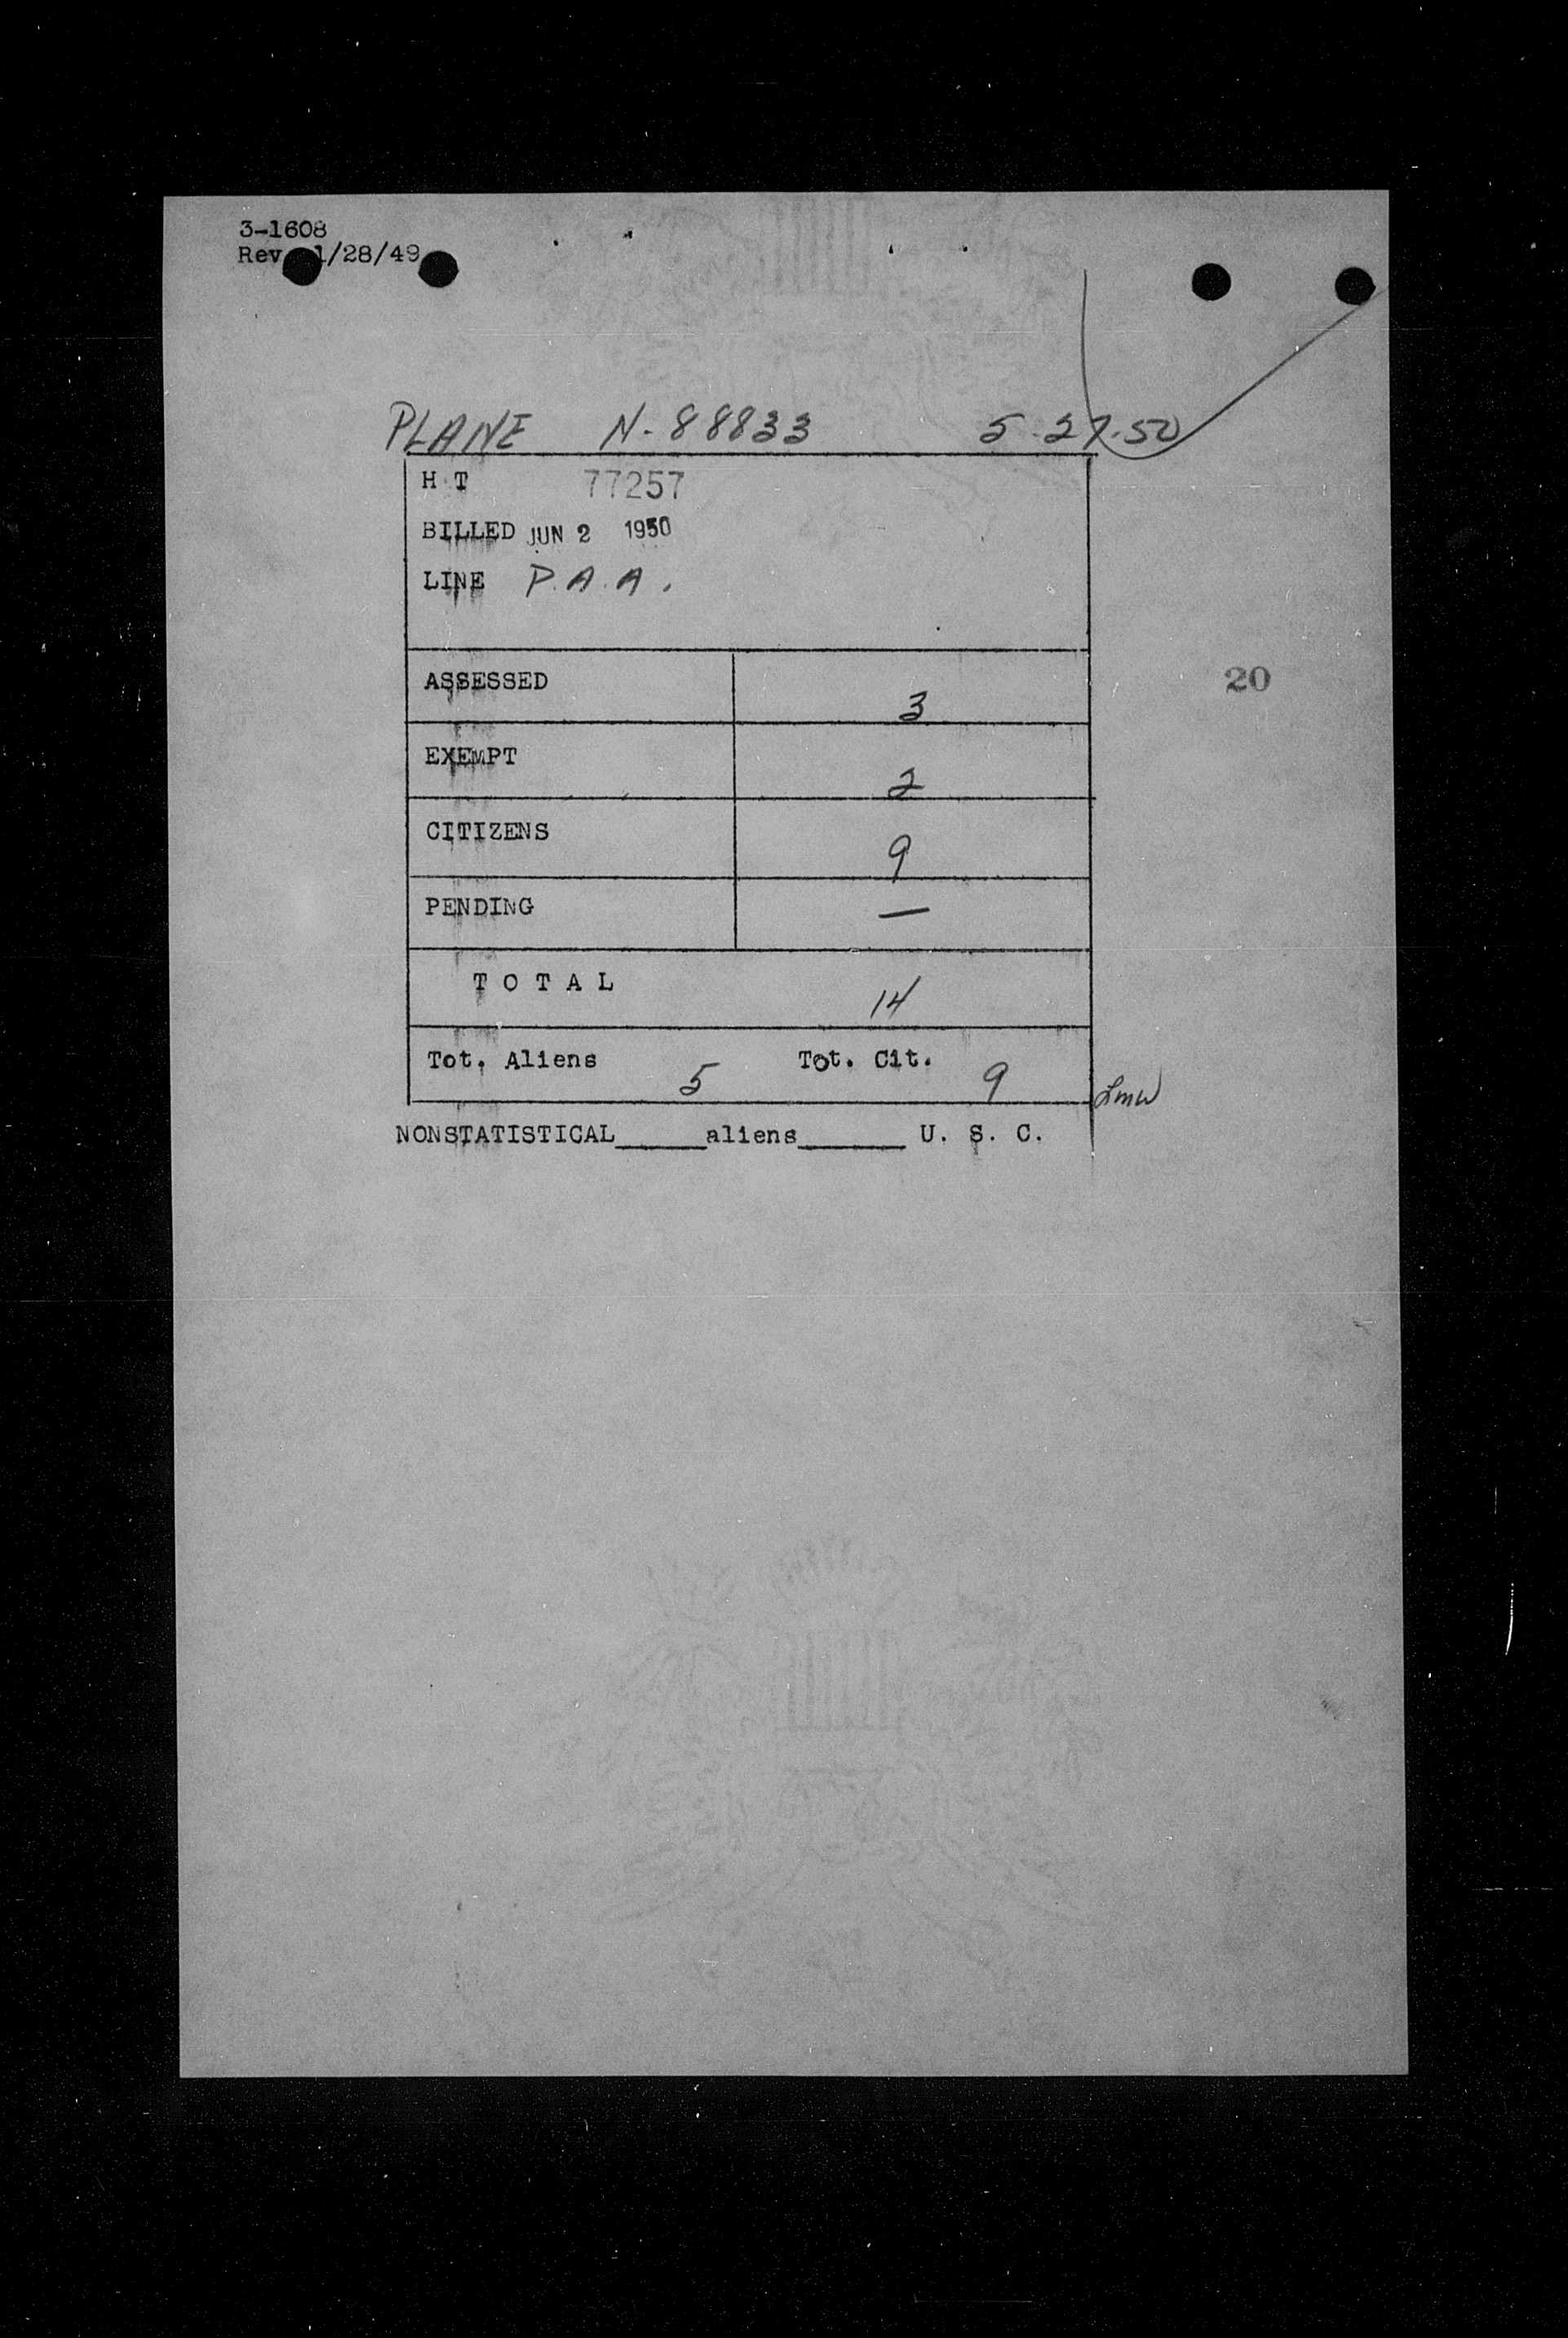 3-1608
Rev 1/28/49
PLANE N-88833 5-27-50
H T 77257
BILLED JUN 2 1950
LINE P.A.A.
20
ASSESSED 3
EXEMPT 2
CITIZENS 9
PENDING —
TOTAL 14
Tot. Aliens 5 Tot. Cit. 9
LMW
NONSTATISTICAL______aliens_______ U. S. C.